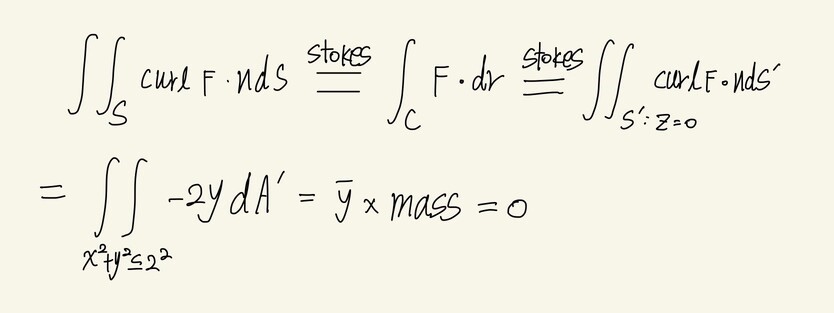 ∬_S curl F · n dS =^{Stokes} ∫_C F · dr =^{Stokes} ∬_{S′: z=0} curl F · n dS′
= ∬_{x²+y²≤2²} -2y dA′ = ȳ × mass = 0